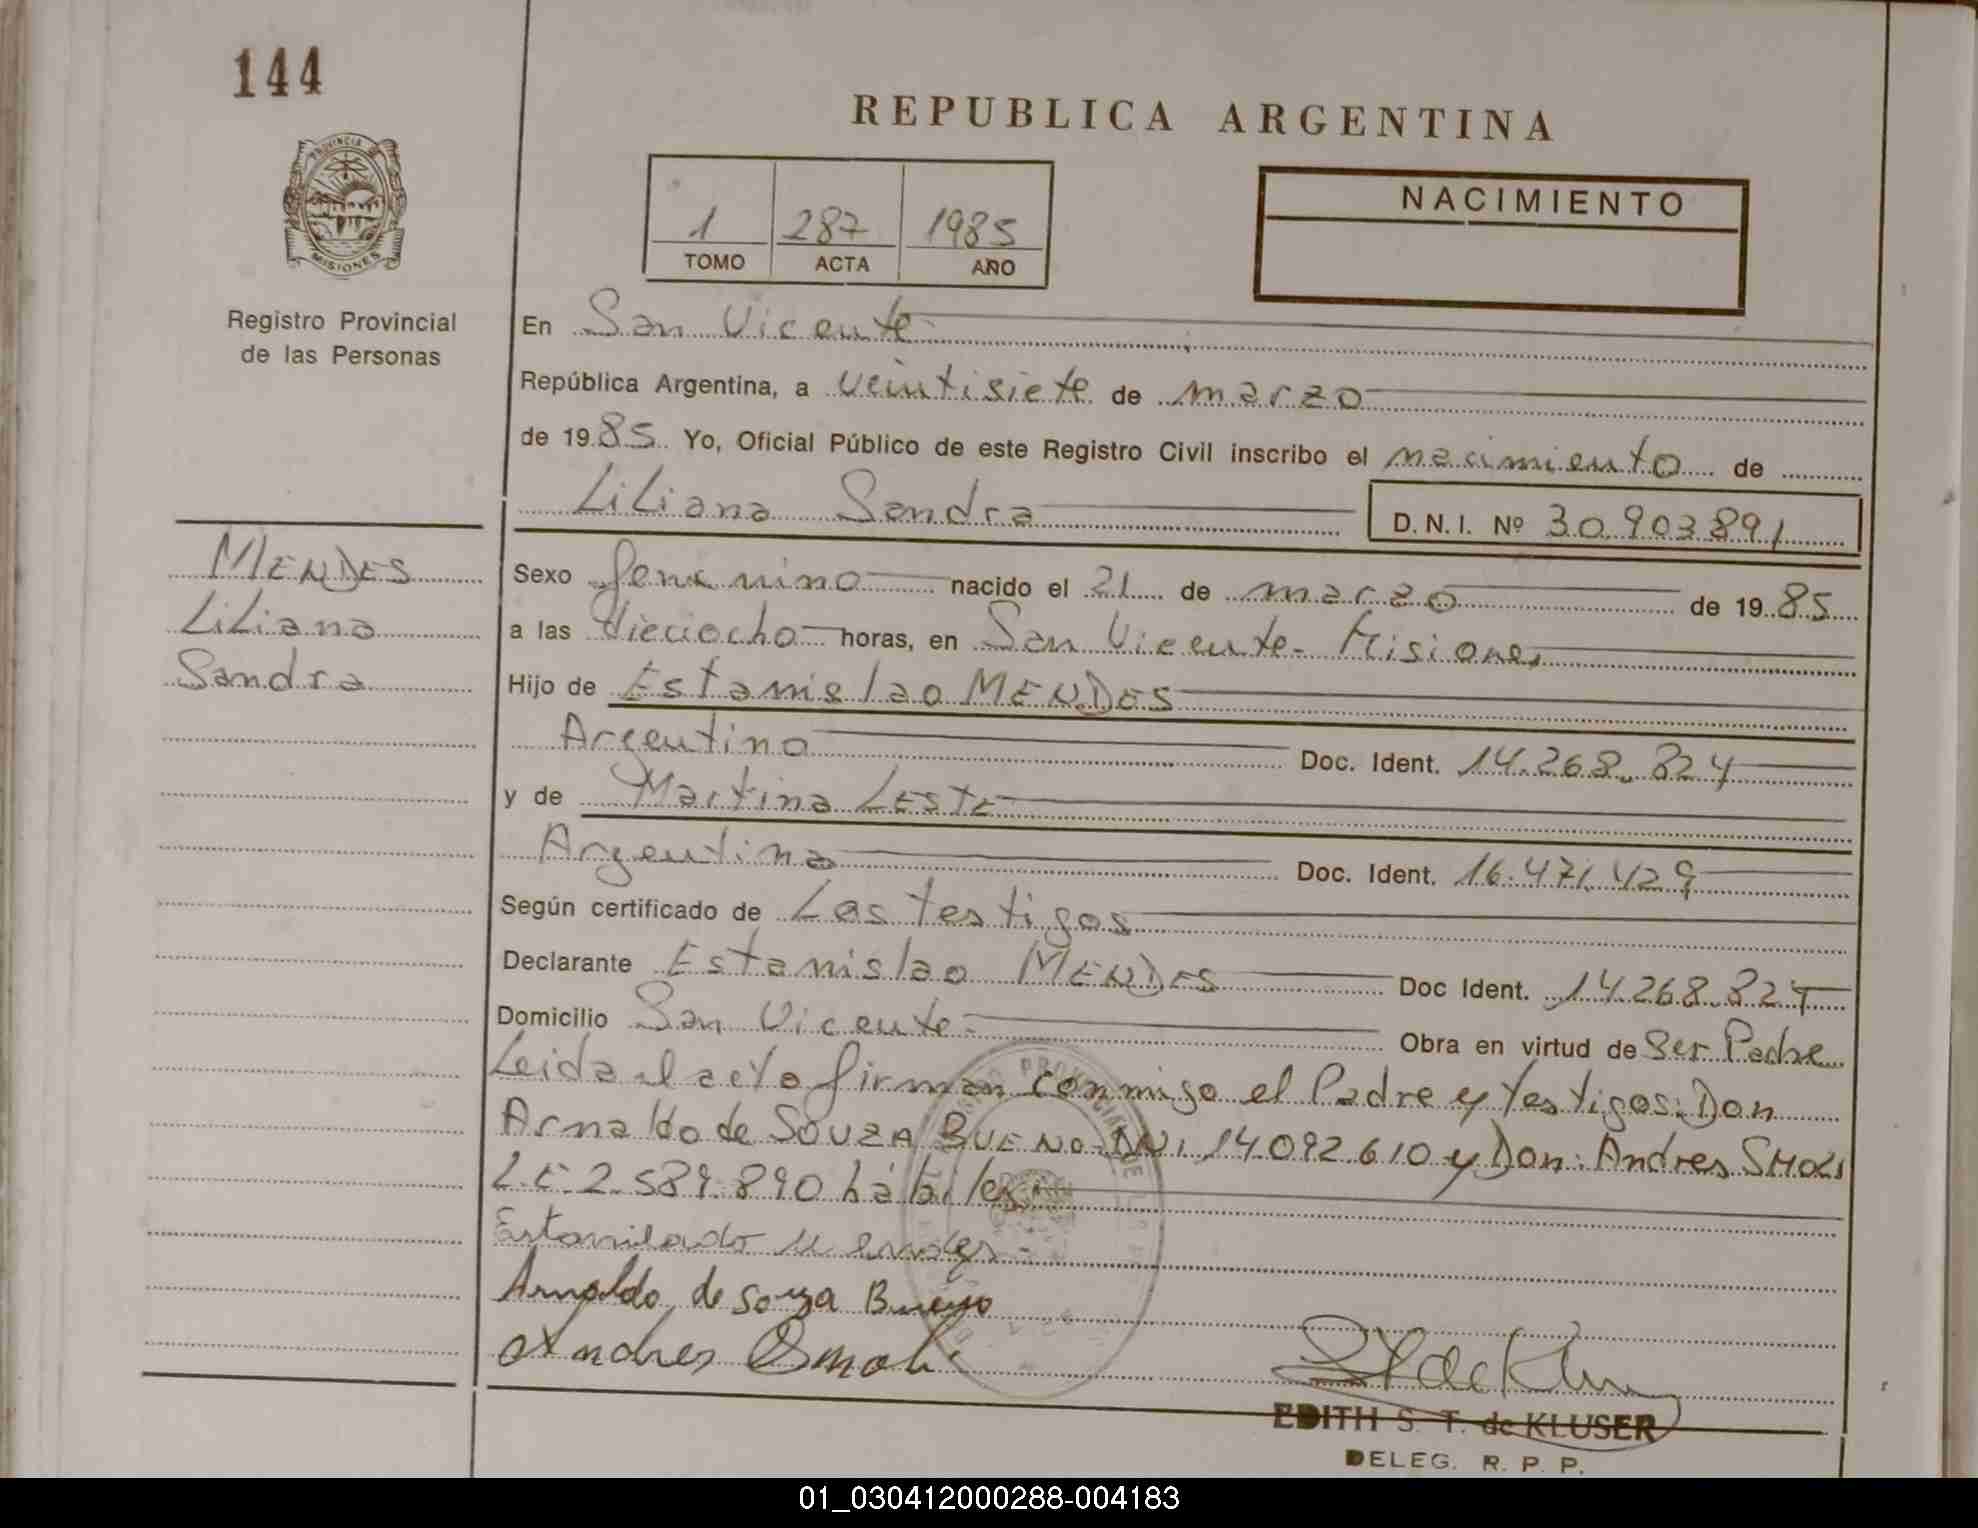 144
REPUBLICA ARGENTINA
PROVINCIA DE
MISIONES
Registro Provincial
de las Personas
1 287 1985
TOMO ACTA AÑO
NACIMIENTO
En San Vicente
República Argentina, a veintisiete de marzo
de 1985 Yo, Oficial Público de este Registro Civil inscribo el nacimiento de
Liliana Sandra D.N.I. Nº 30.903.891
MENDES
Liliana
Sandra
Sexo femenino nacido el 21 de marzo de 1985
a las dieciocho horas, en San Vicente - Misiones
Hijo de Estanislao MENDES
Argentino Doc. Ident. 14.268.824
y de Martina LESTE
Argentina Doc. Ident. 16.471.429
Según certificado de Los testigos
Declarante Estanislao MENDES Doc Ident. 14.268.824
Domicilio San Vicente - Obra en virtud de Ser Padre
Leida el acta firman conmigo el Padre y testigos: Don
Arnaldo de SOUZA BUENO DNI 14.092.610 y Don: Andres SMOLI
L.E. 2.589.890 hábiles
Estanilado mendes -
Arnoldo de Souza Bueno
Andres Smoli
EDITH S. T. de KLUSER
DELEG. R. P. P.
01_030412000288-004183